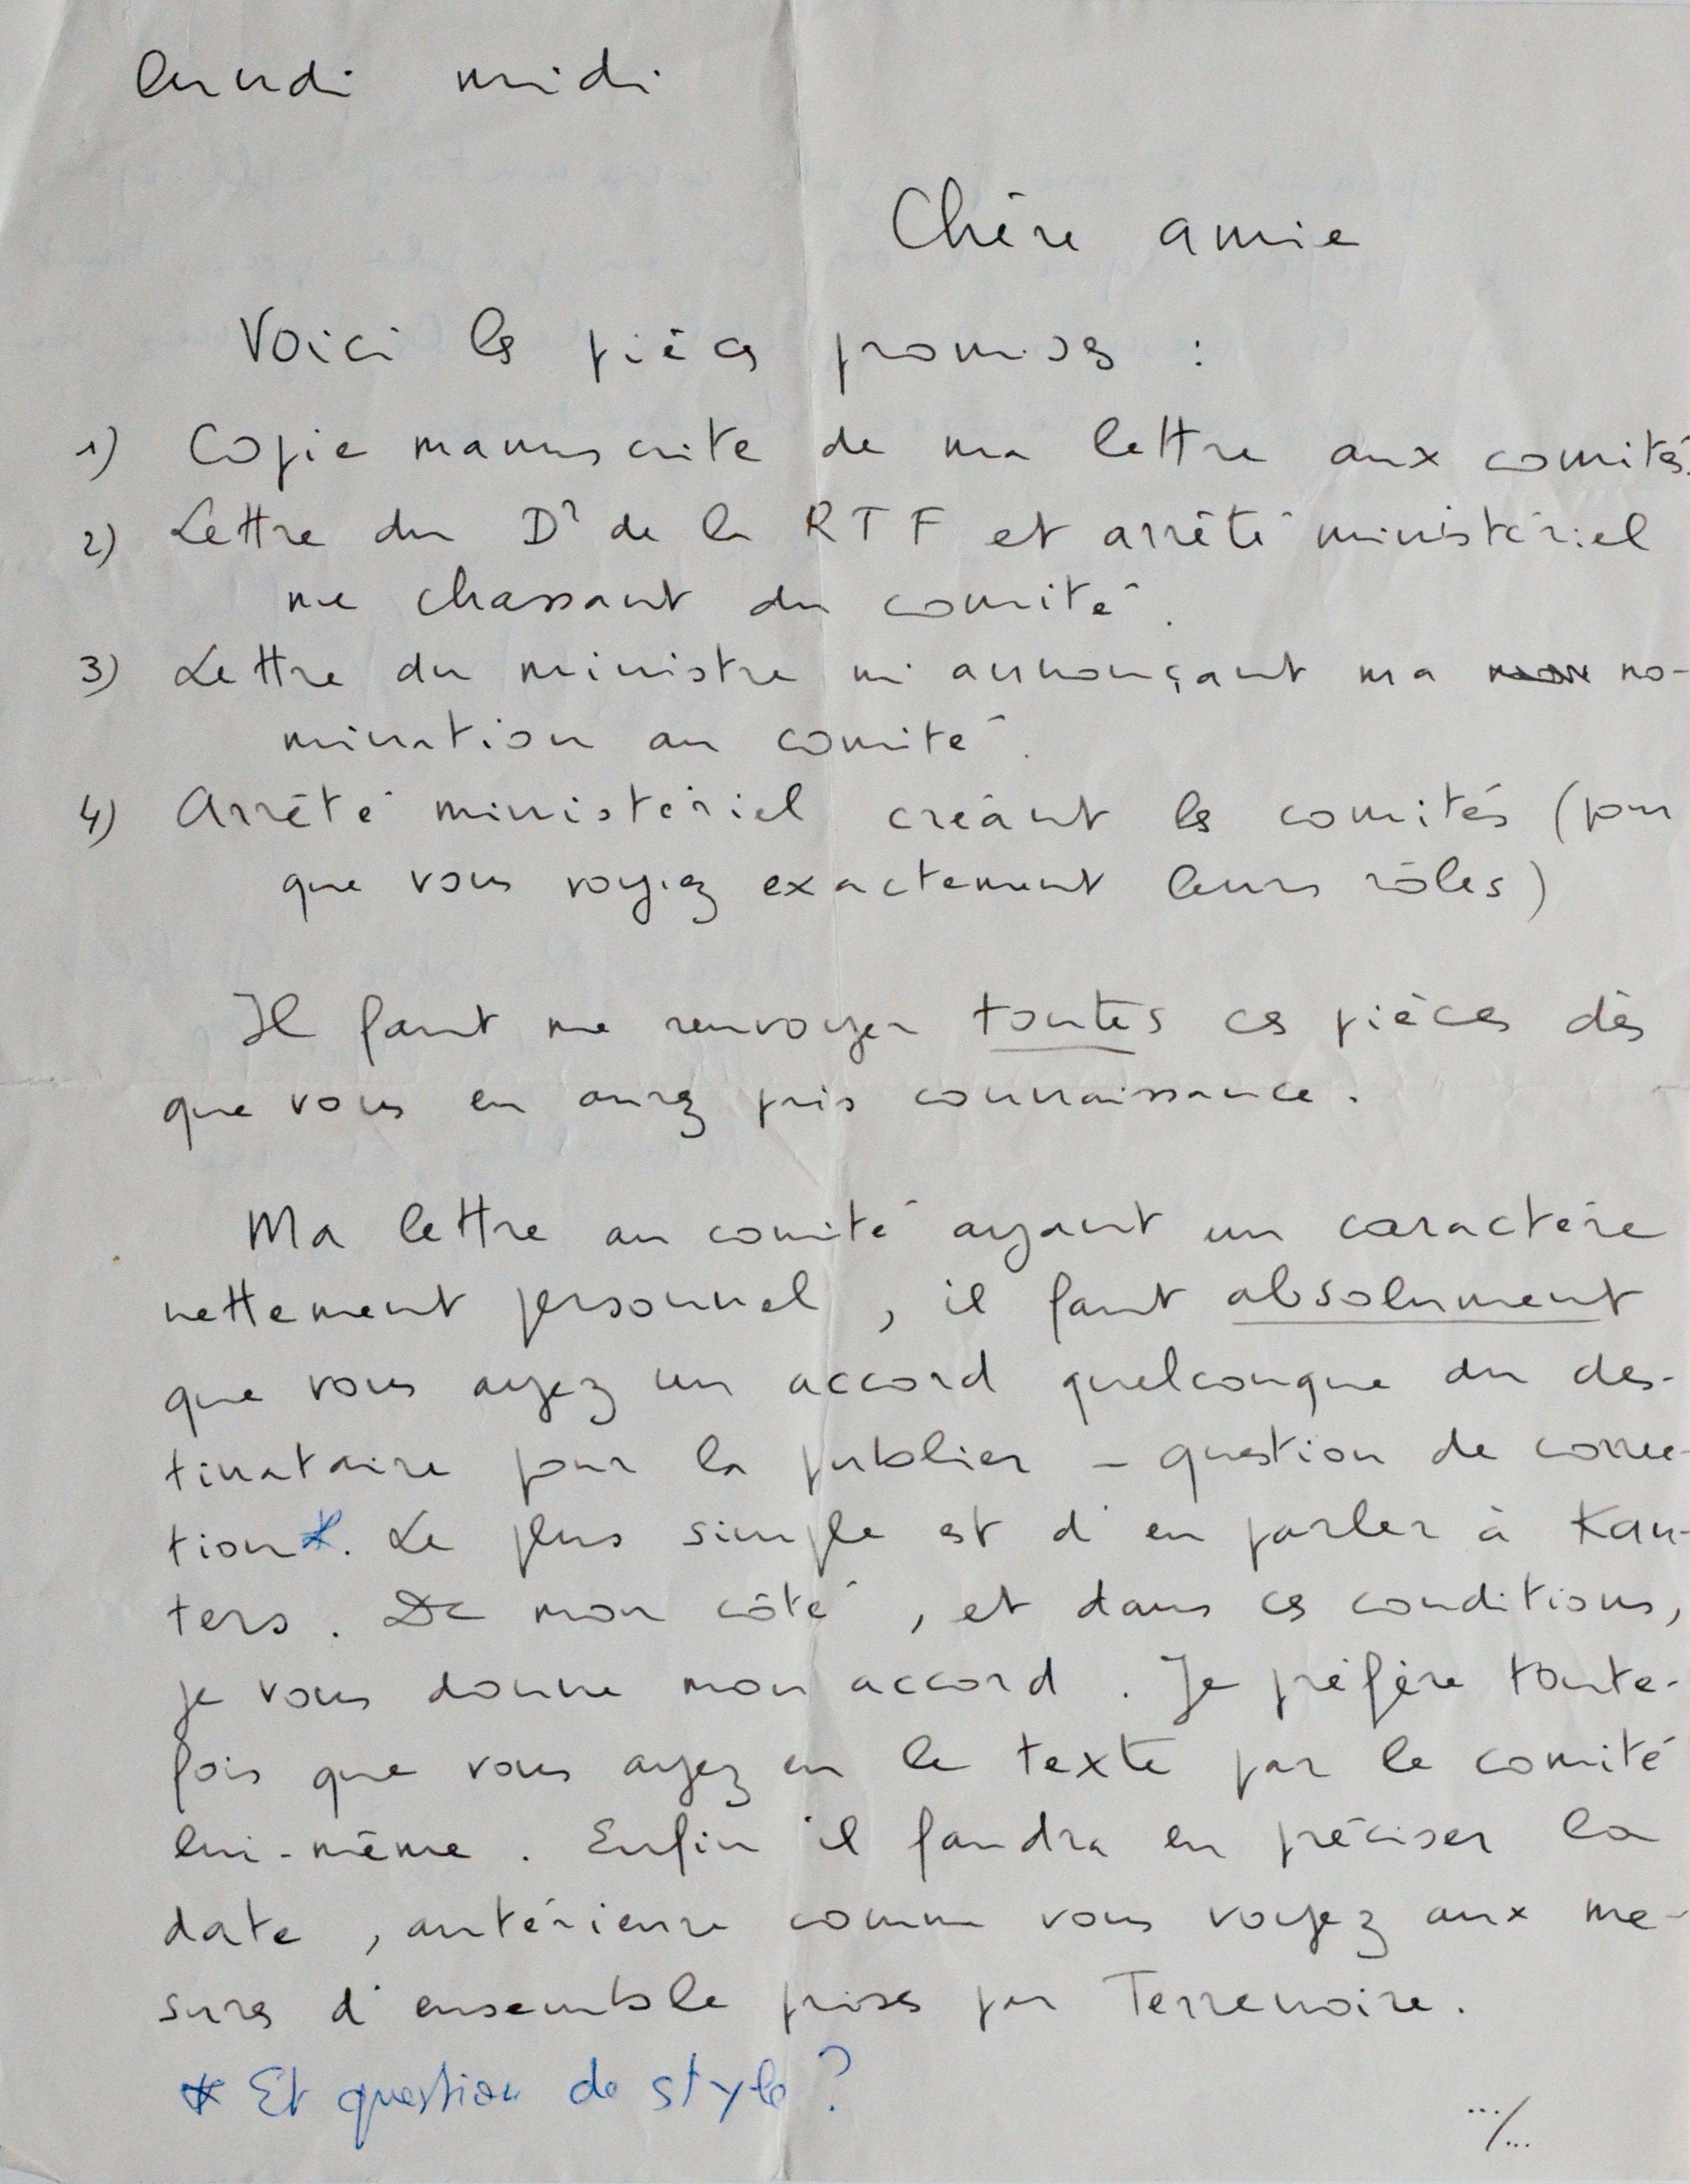 lundi midi
Chère amie
Voici les pièces promises :
1) Copie manuscrite de ma lettre aux comités.
2) Lettre du Dr de la RTF et arrêté ministériel
me chassant du comité.
3) Lettre du ministre m'annonçant ma no-
mination au comité.
4) Arrêté ministériel créant les comités (pour
que vous voyiez exactement leurs rôles)
Il faut me renvoyer toutes ces pièces dès
que vous en aurez pris connaissance.
Ma lettre au comité ayant un caractère
nettement personnel, il faut absolument
que vous ayez un accord quelconque du des-
tinataire pour la publier - question de correc-
tion*. Le plus simple est d'en parler à Kan-
ters. De mon côté, et dans ces conditions,
je vous donne mon accord. Je préfère toute-
fois que vous ayez eu le texte par le comité
lui-même. Enfin il faudra en préciser la
date, antérieure comme vous voyez aux me-
sures d'ensemble prises par Terrenoire.
* Et question de style ?
.../...